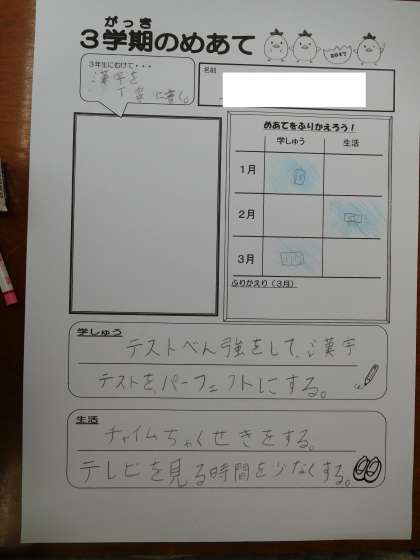 がっき
3学期のめあて
2017
3年生にむけて・・・
漢字を
丁寧に書く。
名前
めあてをふりかえろう！
学しゅう
生活
1月
2月
3月
ふりかえり（3月）
学しゅう
テストべん強をして、漢字
テストを、パーフェクトにする。
生活
チャイムちゃくせきをする。
テレビを見る時間を少なくする。